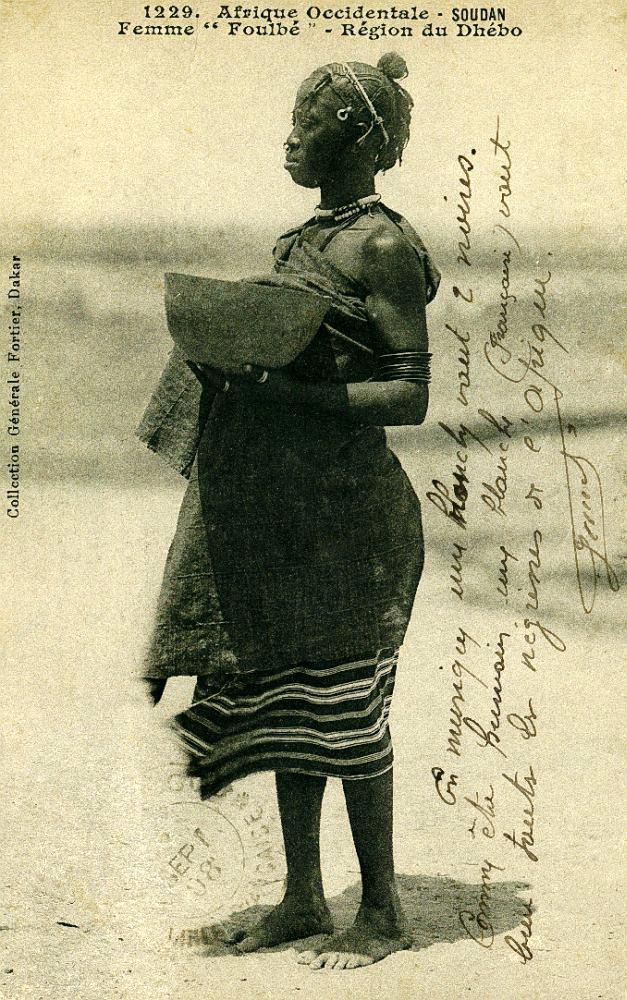 1229. Afrique Occidentale - SOUDAN
Femme “ Foulbé ” - Région du Dhébo
Collection Générale Fortier, Dakar
En musique une blanche vaut 2 noires.
Comme être humain une blanche (Française) vaut
bien toutes les négresses de l'Afrique.
SEPT
08